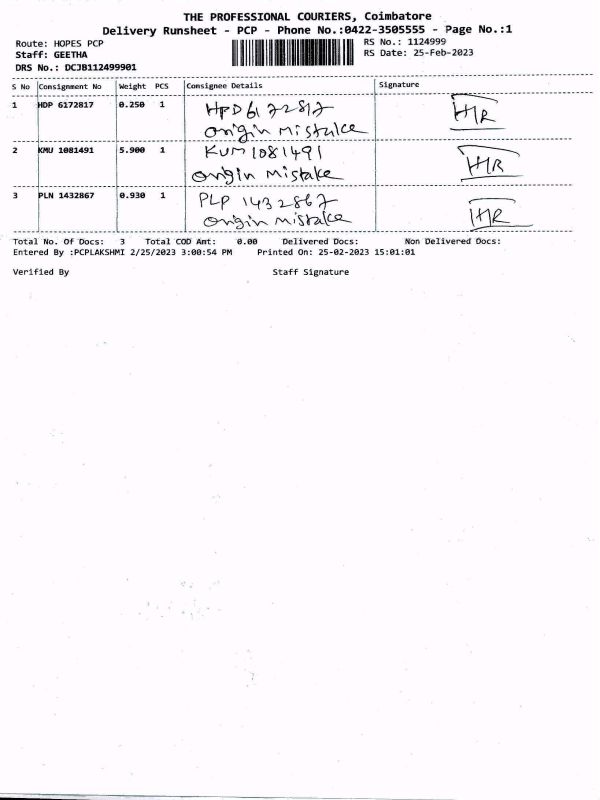 THE PROFESSIONAL COURIERS, Coimbatore
Delivery Runsheet - PCP - Phone No.:0422-3505555 - Page No.:1
Route: HOPES PCP
Staff: GEETHA
DRS No.: DCJB112499901
RS No.: 1124999
RS Date: 25-Feb-2023
S No Consignment No Weight PCS Consignee Details Signature
1 HDP 6172817 0.250 1 HPD6172817
origin mistake HR
2 KMU 1081491 5.900 1 KUM1081491
origin mistake HR
3 PLN 1432867 0.930 1 PLP 1432867
origin mistake HR
Total No. Of Docs: 3 Total COD Amt: 0.00 Delivered Docs: Non Delivered Docs:
Entered By :PCPLAKSHMI 2/25/2023 3:00:54 PM Printed On: 25-02-2023 15:01:01
Verified By Staff Signature